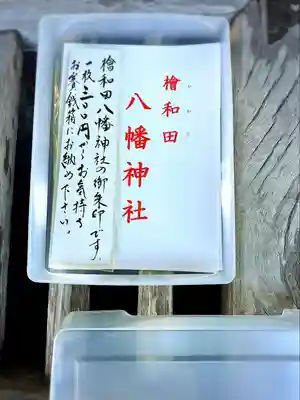 檜和田
八幡神社
檜和田八幡神社の御朱印です。
一枚三〇〇円でお気持ち
お賽銭箱にお納め下さい。